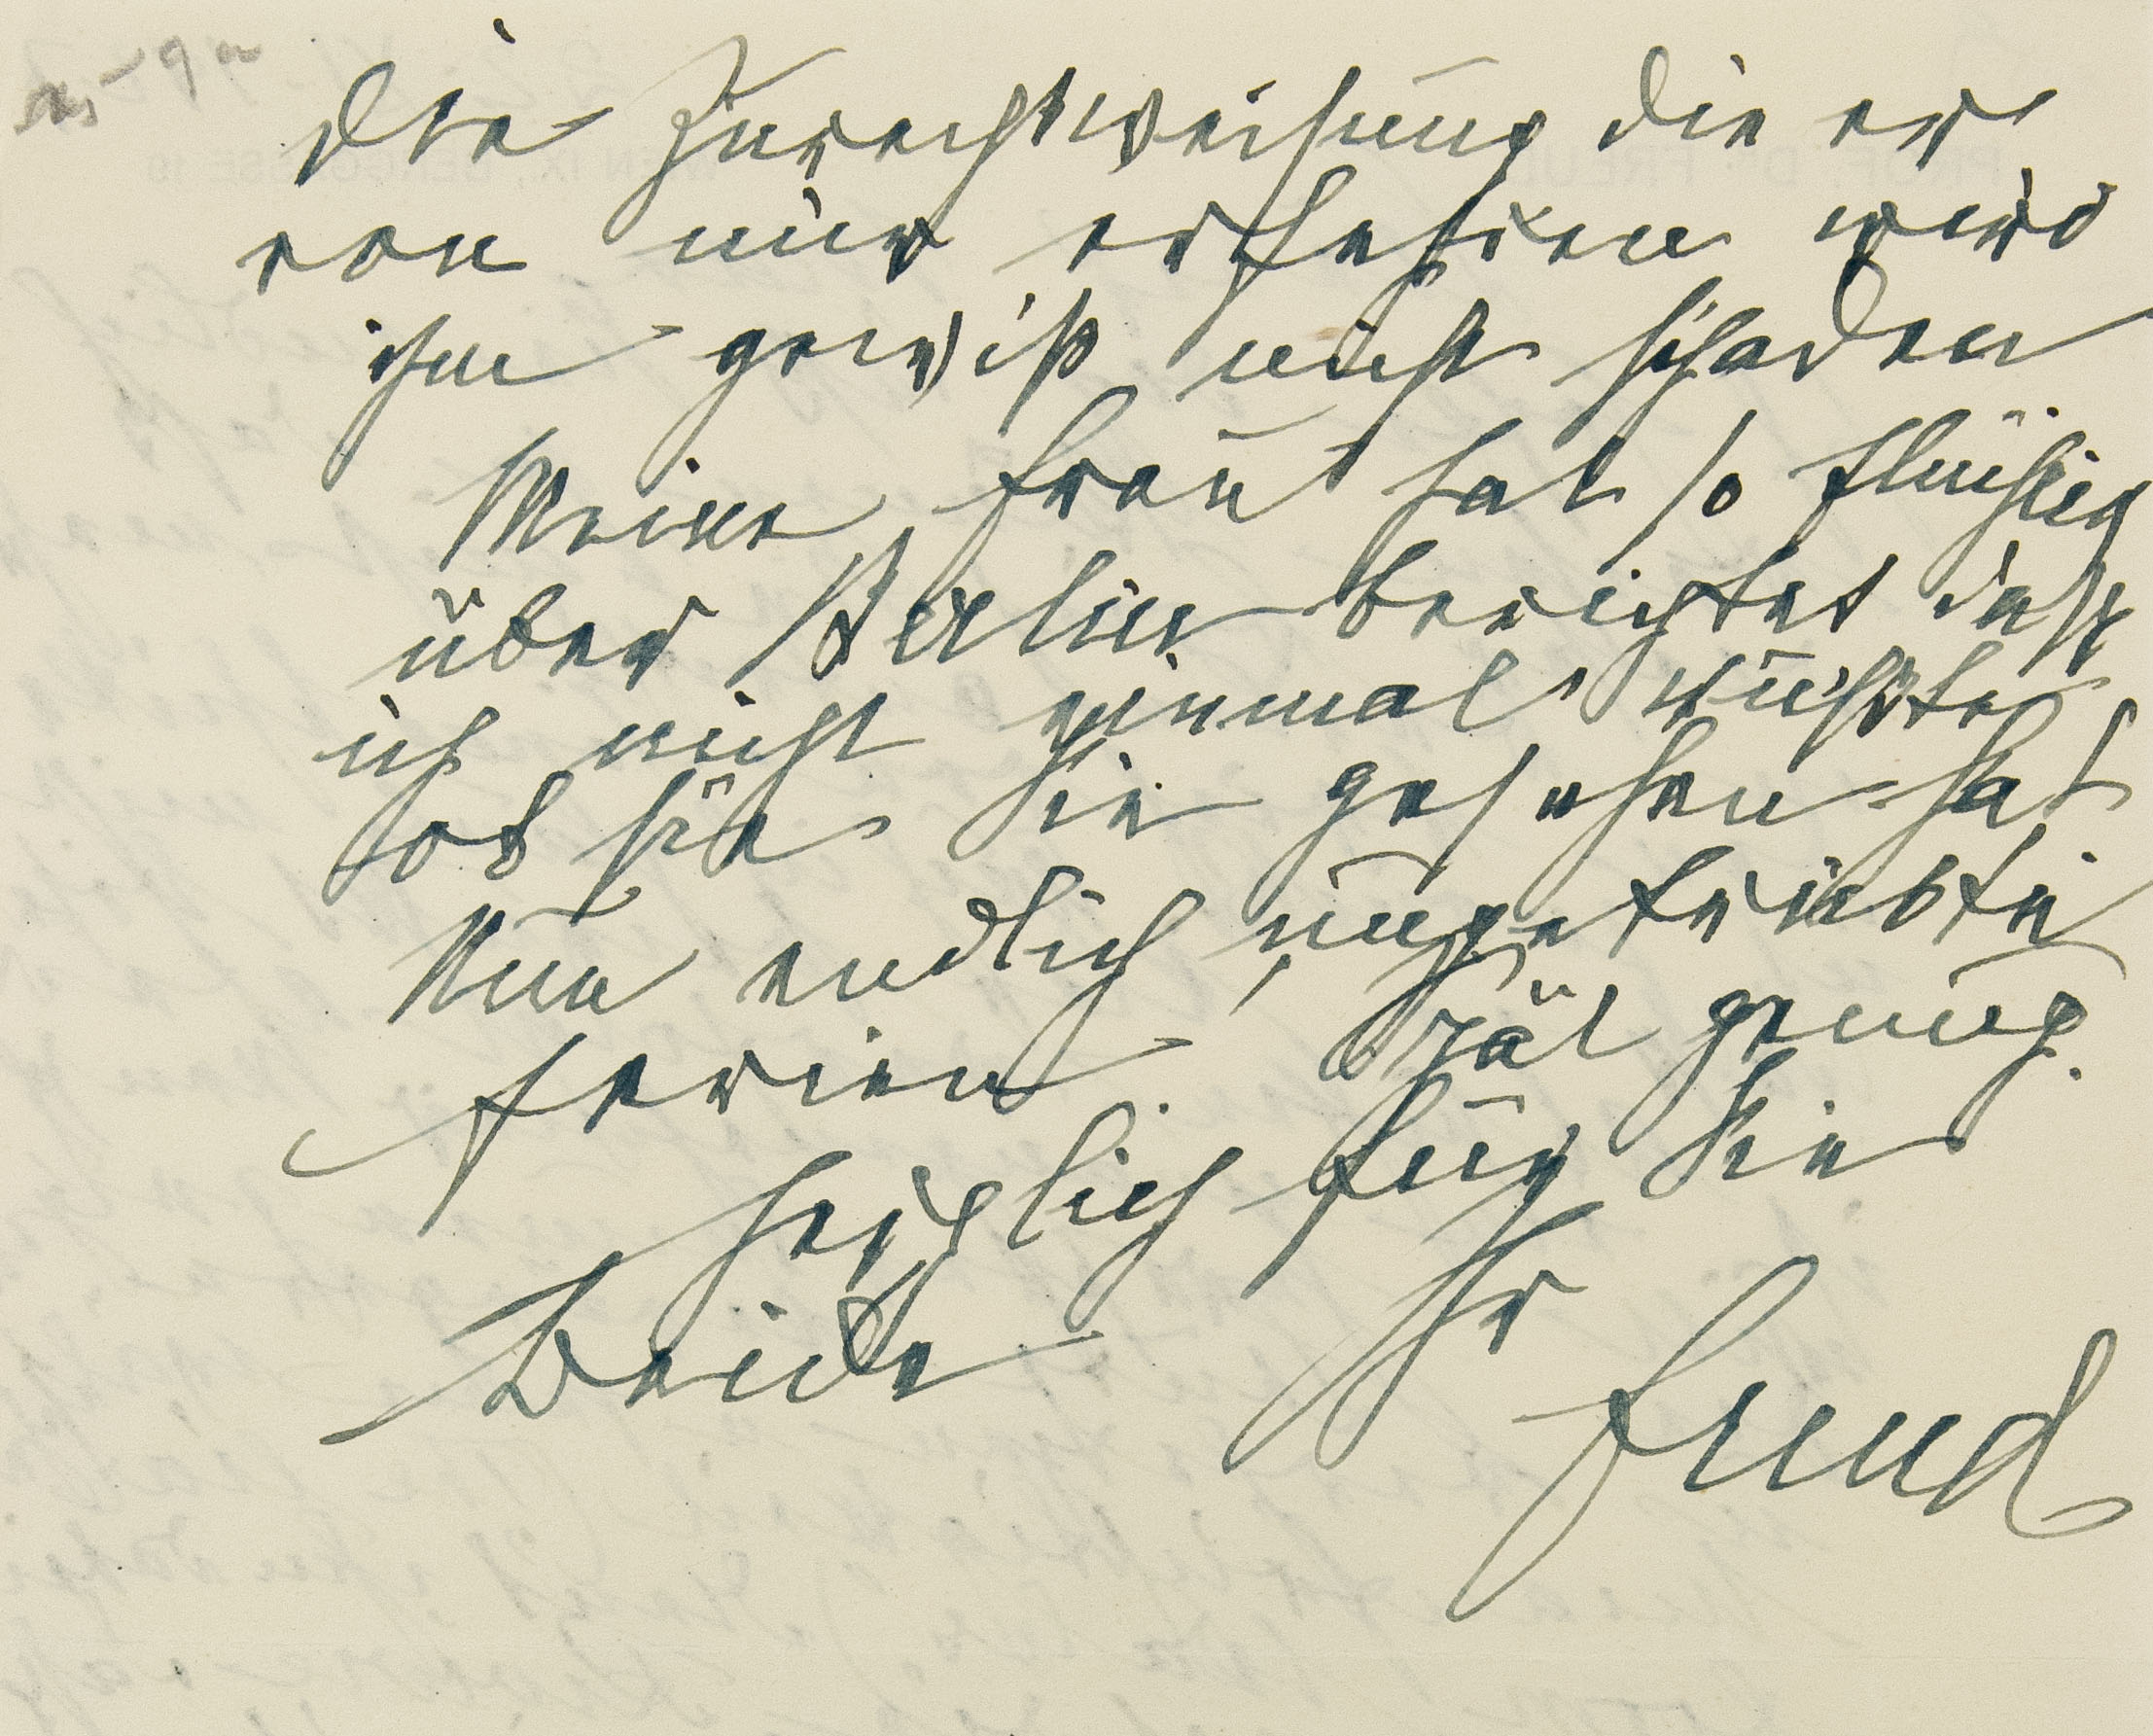 Die Zurechtweisung die er
von mir erfahren wird
ihm gewiß nicht schaden
Meine Frau hat so flüchtig
über Berlin berichtet daß
ich nicht einmal wüßte
ob sie Sie gesehen hat
Nun endlich ungetrübte
Ferien. Spät genug.
Herzlich für Sie
Beide Ihr
Freud